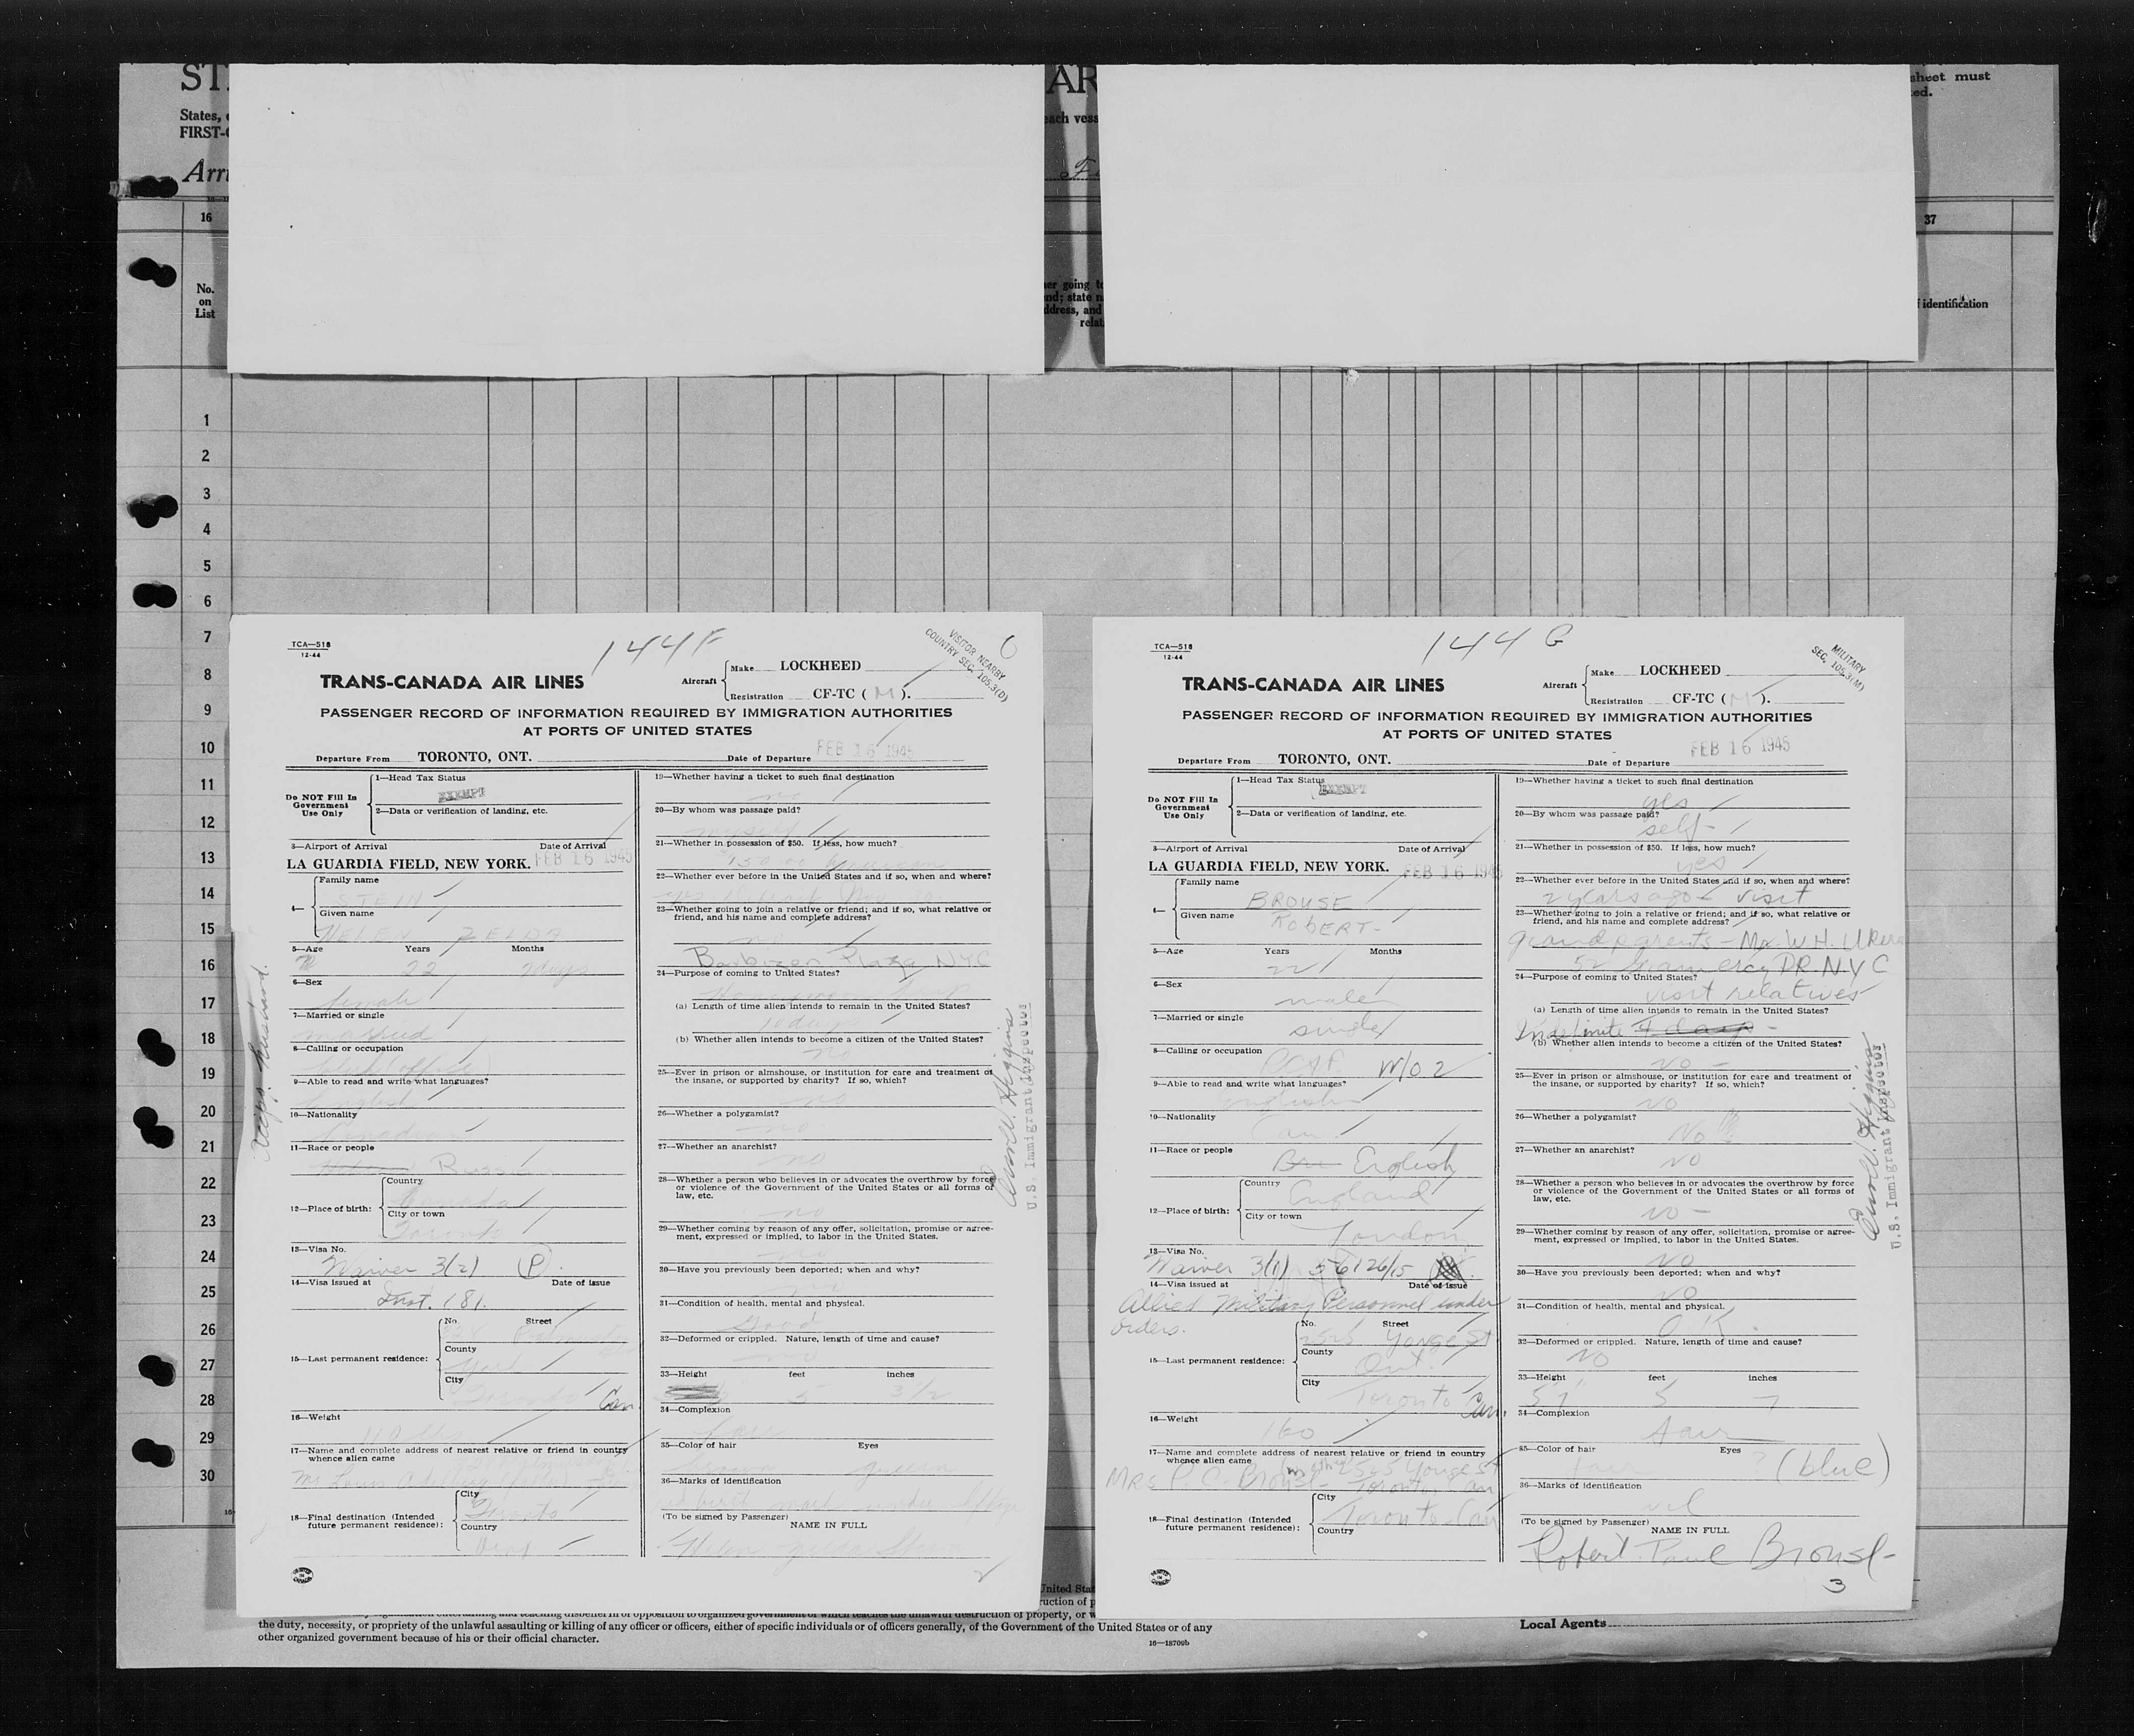 ST
AR
sheet must
ed.
States,
each vess
FIRST-
Arri
16
37
No.
on
List
er going to
end; state n
ddress, and
relat
f identification
1
2
3
4
5
6
7
8
9
10
11
12
13
14
15
16
17
18
19
20
21
22
23
24
25
26
27
28
29
30
TCA—518
12-44
144F
VISITOR NEARBY
COUNTRY SEC. 105.3(D)
6
TRANS-CANADA AIR LINES
Aircraft
Make LOCKHEED
Registration CF-TC ( M ).
PASSENGER RECORD OF INFORMATION REQUIRED BY IMMIGRATION AUTHORITIES
AT PORTS OF UNITED STATES
Departure From TORONTO, ONT. Date of Departure FEB 16 1945
Do NOT Fill In
Government
Use Only
1—Head Tax Status
EXEMPT
2—Data or verification of landing, etc.
3—Airport of Arrival Date of Arrival
LA GUARDIA FIELD, NEW YORK. FEB 16 1945
4—
Family name
STEIN
Given name
HELEN ZELDA
5—Age Years Months
22 2 days
6—Sex
female
7—Married or single
married
8—Calling or occupation
9—Able to read and write what languages?
English
10—Nationality
11—Race or people
Russian
12—Place of birth:
Country
Canada
City or town
Toronto
13—Visa No.
Waiver 3(2) P
14—Visa issued at Date of issue
Inst. 181.
15—Last permanent residence:
No. Street
County
York
City
Toronto Can.
16—Weight
17—Name and complete address of nearest relative or friend in country
whence alien came
18—Final destination (Intended
future permanent residence):
City
Toronto
Country
Ont
19—Whether having a ticket to such final destination
no
20—By whom was passage paid?
myself
21—Whether in possession of $50. If less, how much?
22—Whether ever before in the United States and if so, when and where?
23—Whether going to join a relative or friend; and if so, what relative or
friend, and his name and complete address?
no
Barbizon Plaza NYC
24—Purpose of coming to United States?
Honeymoon
(a) Length of time alien intends to remain in the United States?
10 days
(b) Whether alien intends to become a citizen of the United States?
no
25—Ever in prison or almshouse, or institution for care and treatment of
the insane, or supported by charity? If so, which?
no
26—Whether a polygamist?
no
27—Whether an anarchist?
no
28—Whether a person who believes in or advocates the overthrow by force
or violence of the Government of the United States or all forms of
law, etc.
no
29—Whether coming by reason of any offer, solicitation, promise or agree-
ment, expressed or implied, to labor in the United States.
no
30—Have you previously been deported; when and why?
no
31—Condition of health, mental and physical.
Good
32—Deformed or crippled. Nature, length of time and cause?
no
33—Height feet inches
5 3 1/2
34—Complexion
35—Color of hair Eyes
brown green
36—Marks of identification
(To be signed by Passenger)
NAME IN FULL
Helen Zelda Stein
2
husband.
U.S. Immigrant Inspector
TCA—518
12-44
144 G
MILITARY
SEC. 105.3(M)
TRANS-CANADA AIR LINES
Aircraft
Make LOCKHEED
Registration CF-TC ( M ).
PASSENGER RECORD OF INFORMATION REQUIRED BY IMMIGRATION AUTHORITIES
AT PORTS OF UNITED STATES
Departure From TORONTO, ONT. Date of Departure FEB 16 1945
Do NOT Fill In
Government
Use Only
1—Head Tax Status
EXEMPT
2—Data or verification of landing, etc.
3—Airport of Arrival Date of Arrival
LA GUARDIA FIELD, NEW YORK. FEB 16 1945
4—
Family name
BROUSE
Given name
ROBERT-
5—Age Years Months
22
6—Sex
male
7—Married or single
single
8—Calling or occupation
W/O 2
9—Able to read and write what languages?
English
10—Nationality
Can.
11—Race or people
English
12—Place of birth:
Country
England
City or town
London
13—Visa No.
Waiver 3(1) 56126/15
14—Visa issued at Date of issue
Allied Military Personnel under
orders.
15—Last permanent residence:
No. Street
2525 Yonge St
County
Ont.
City
Toronto Can.
16—Weight
160
17—Name and complete address of nearest relative or friend in country
whence alien came (mother) 2525 Yonge St
Mrs Brouse - Toronto Can
18—Final destination (Intended
future permanent residence):
City
Toronto Can
Country
19—Whether having a ticket to such final destination
yes
20—By whom was passage paid?
self-
21—Whether in possession of $50. If less, how much?
yes
22—Whether ever before in the United States and if so, when and where?
2 years ago - visit
23—Whether going to join a relative or friend; and if so, what relative or
friend, and his name and complete address?
grandparents - Mr. W.H. Ukers
52 Gramercy PR. N.Y C
24—Purpose of coming to United States?
visit relatives
(a) Length of time alien intends to remain in the United States?
Indefinite
(b) Whether alien intends to become a citizen of the United States?
NO -
25—Ever in prison or almshouse, or institution for care and treatment of
the insane, or supported by charity? If so, which?
NO
26—Whether a polygamist?
NO
27—Whether an anarchist?
NO
28—Whether a person who believes in or advocates the overthrow by force
or violence of the Government of the United States or all forms of
law, etc.
NO -
29—Whether coming by reason of any offer, solicitation, promise or agree-
ment, expressed or implied, to labor in the United States.
NO
30—Have you previously been deported; when and why?
NO
31—Condition of health, mental and physical.
O.K.
32—Deformed or crippled. Nature, length of time and cause?
NO
33—Height feet inches
5'7" 5 7
34—Complexion
fair
35—Color of hair Eyes
fair (blue)
36—Marks of identification
nil
(To be signed by Passenger)
NAME IN FULL
Robert Paul Brouse
3
U.S. Immigrant Inspector
United Stat
ruction of p
the duty, necessity, or propriety of the unlawful assaulting or killing of any officer or officers, either of specific individuals or of officers generally, of the Government of the United States or of any
other organized government because of his or their official character.
16—18700b
Local Agents